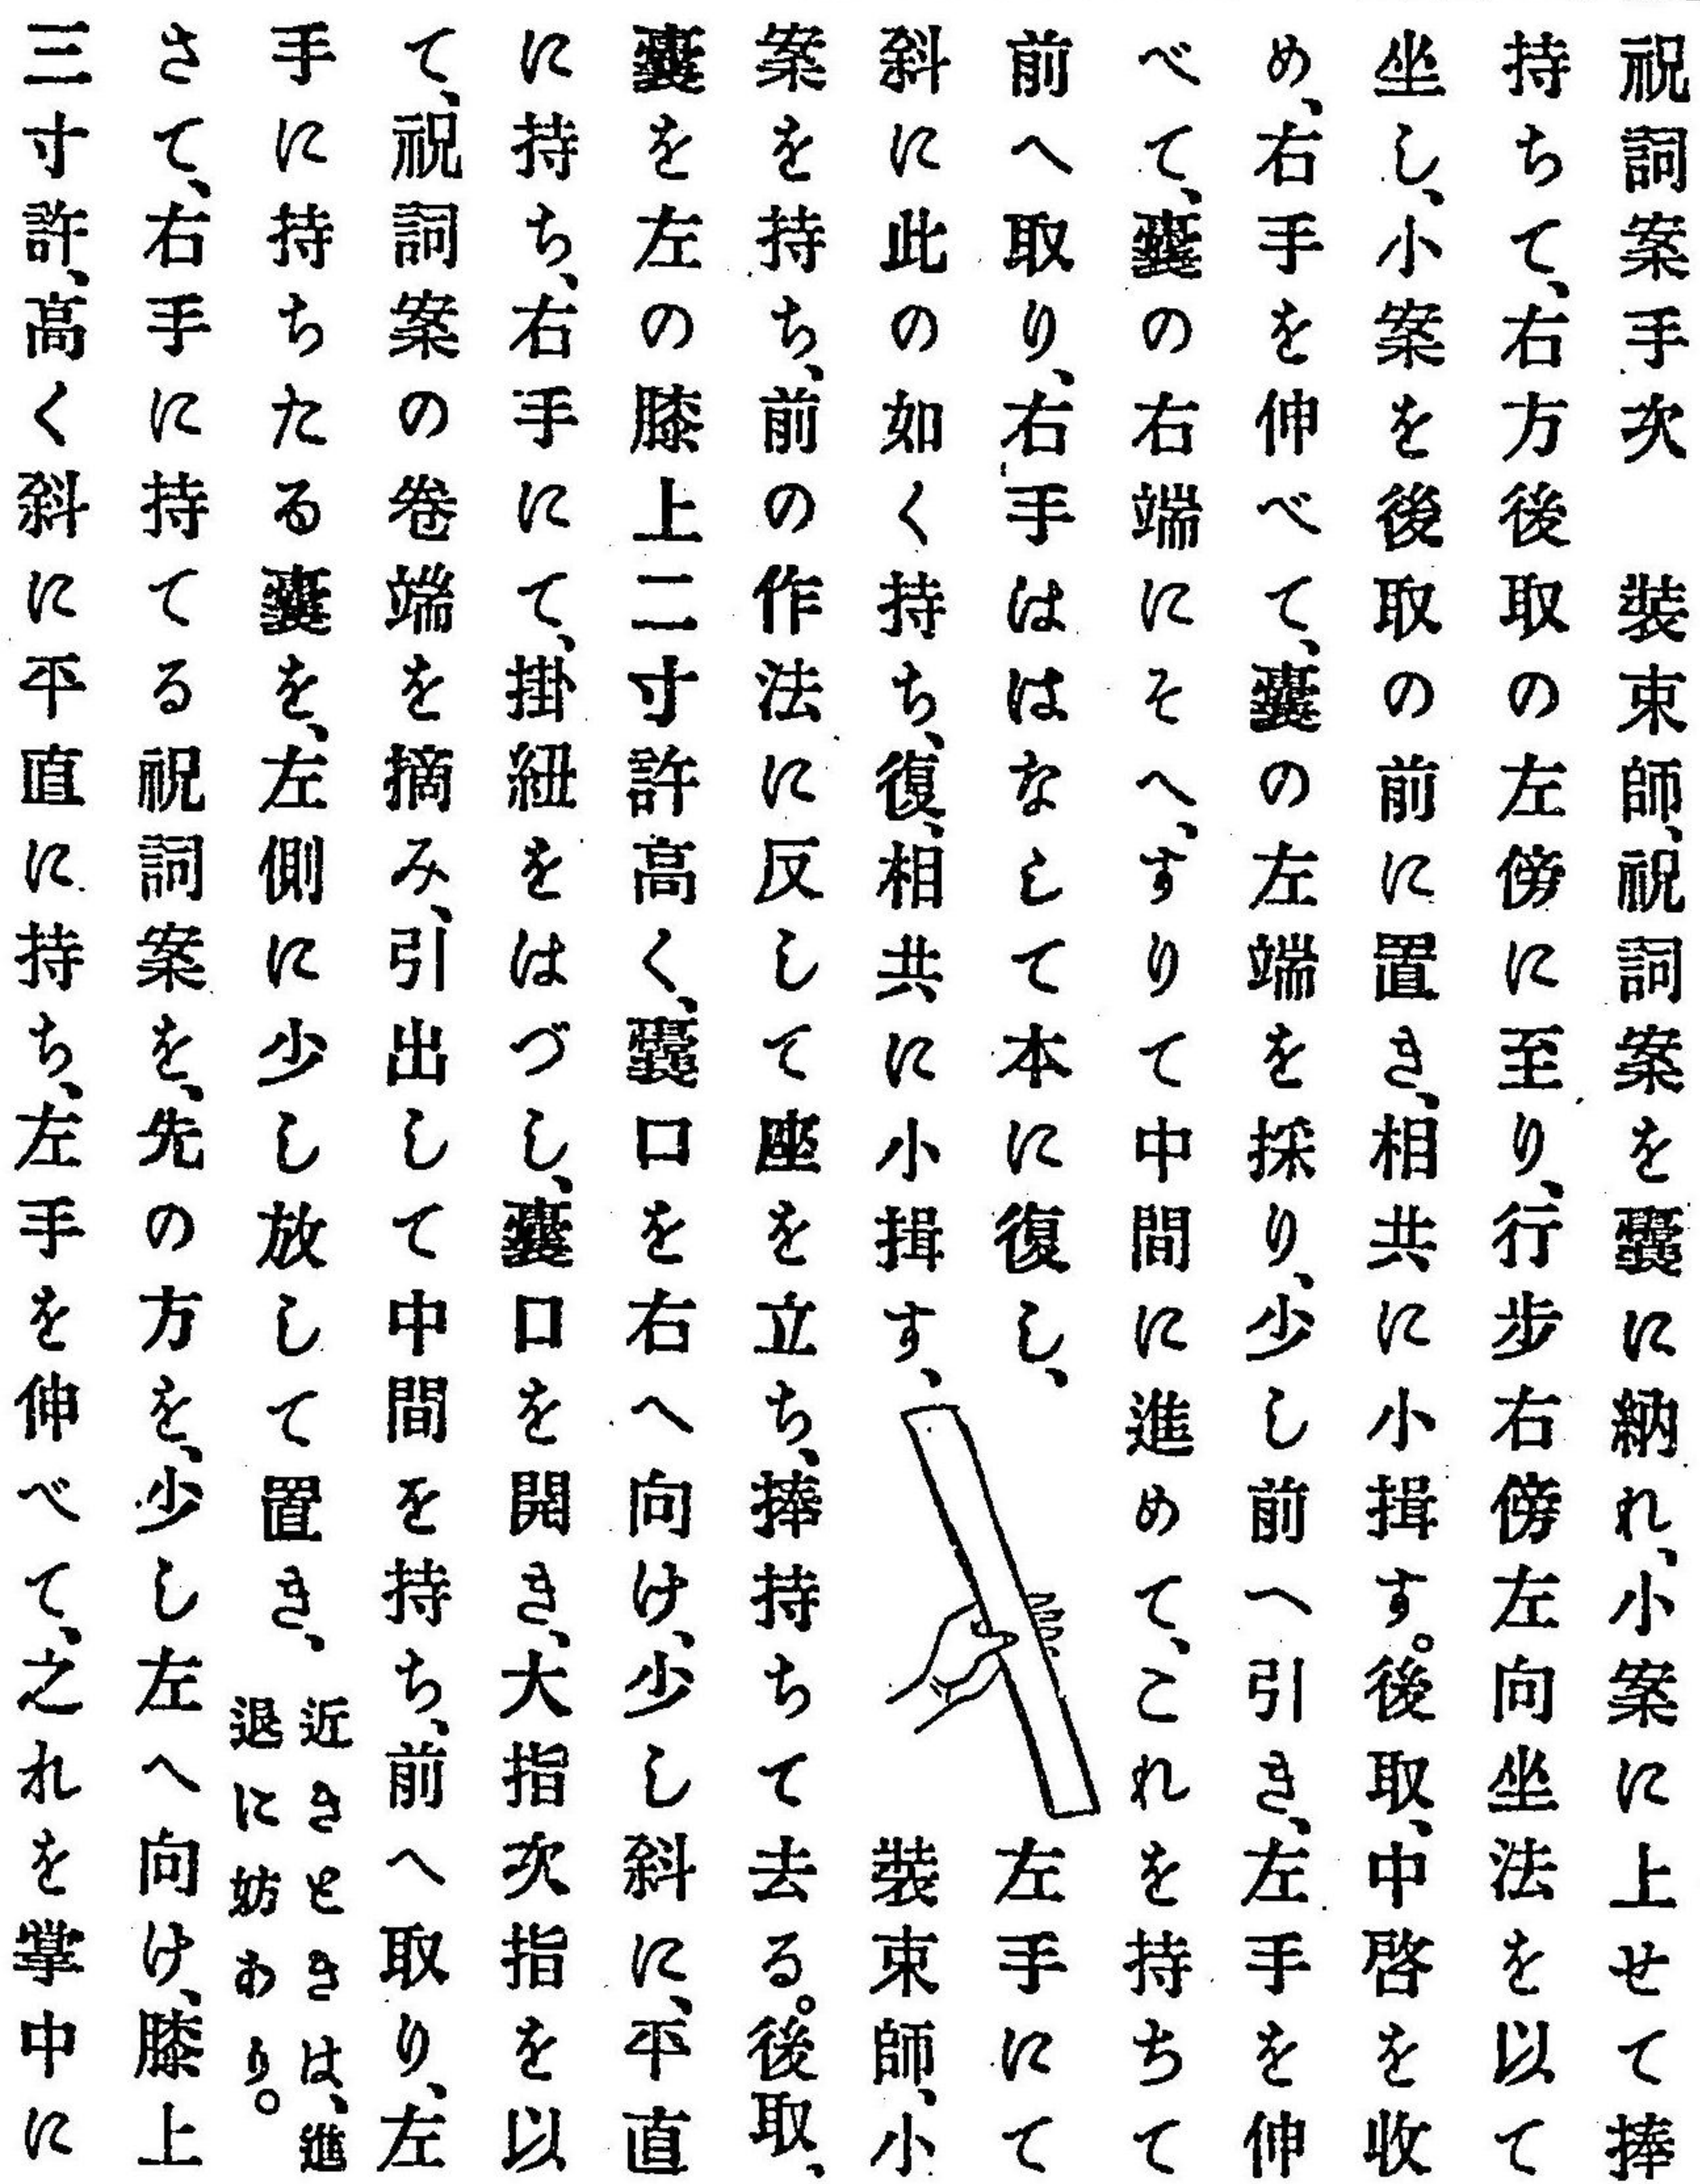 祝詞案手次　裝束師、祝詞案を囊に納れ、小案に上せて捧
持ちて、右方後取の左傍に至り、行步右傍左向坐法を以て
坐し、小案を後取の前に置き、相共に小揖す。後取、中啓を收
め、右手を伸べて、囊の左端を採り、少し前へ引き、左手を伸
べて、囊の右端にそへ、すりて中間に進めて、これを持ちて
前へ取り、右手ははなして本に復し、左手にて
斜に此の如く持ち、復、相共に小揖す、裝束師、小
案を持ち、前の作法に反して座を立ち、捧持ちて去る。後取、
囊を左の膝上二寸許高く、囊口を右へ向け、少し斜に、平直
に持ち、右手にて、掛紐をはづし、囊口を開き、大指次指を以
て、祝詞案の卷端を摘み、引出して中間を持ち、前へ取り、左
手に持ちたる囊を、左側に少し放して置き、
近きときは、進
退に妨あり。
さて、右手に持てる祝詞案を、先の方を、少し左へ向け、膝上
三寸許、高く斜に平直に持ち、左手を伸べて、之れを掌中に